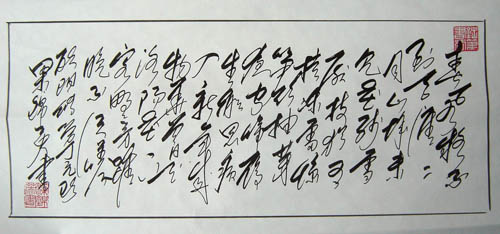 春风疑不
到天涯二
月山城未
见花残雪
压枝犹有
桔冻雷惊
笋欲抽芽
夜闻归雁
生乡思病
入新年感
物华曾是
洛阳花下
客野芳虽
晚不须嗟
欧阳修答元珍
书